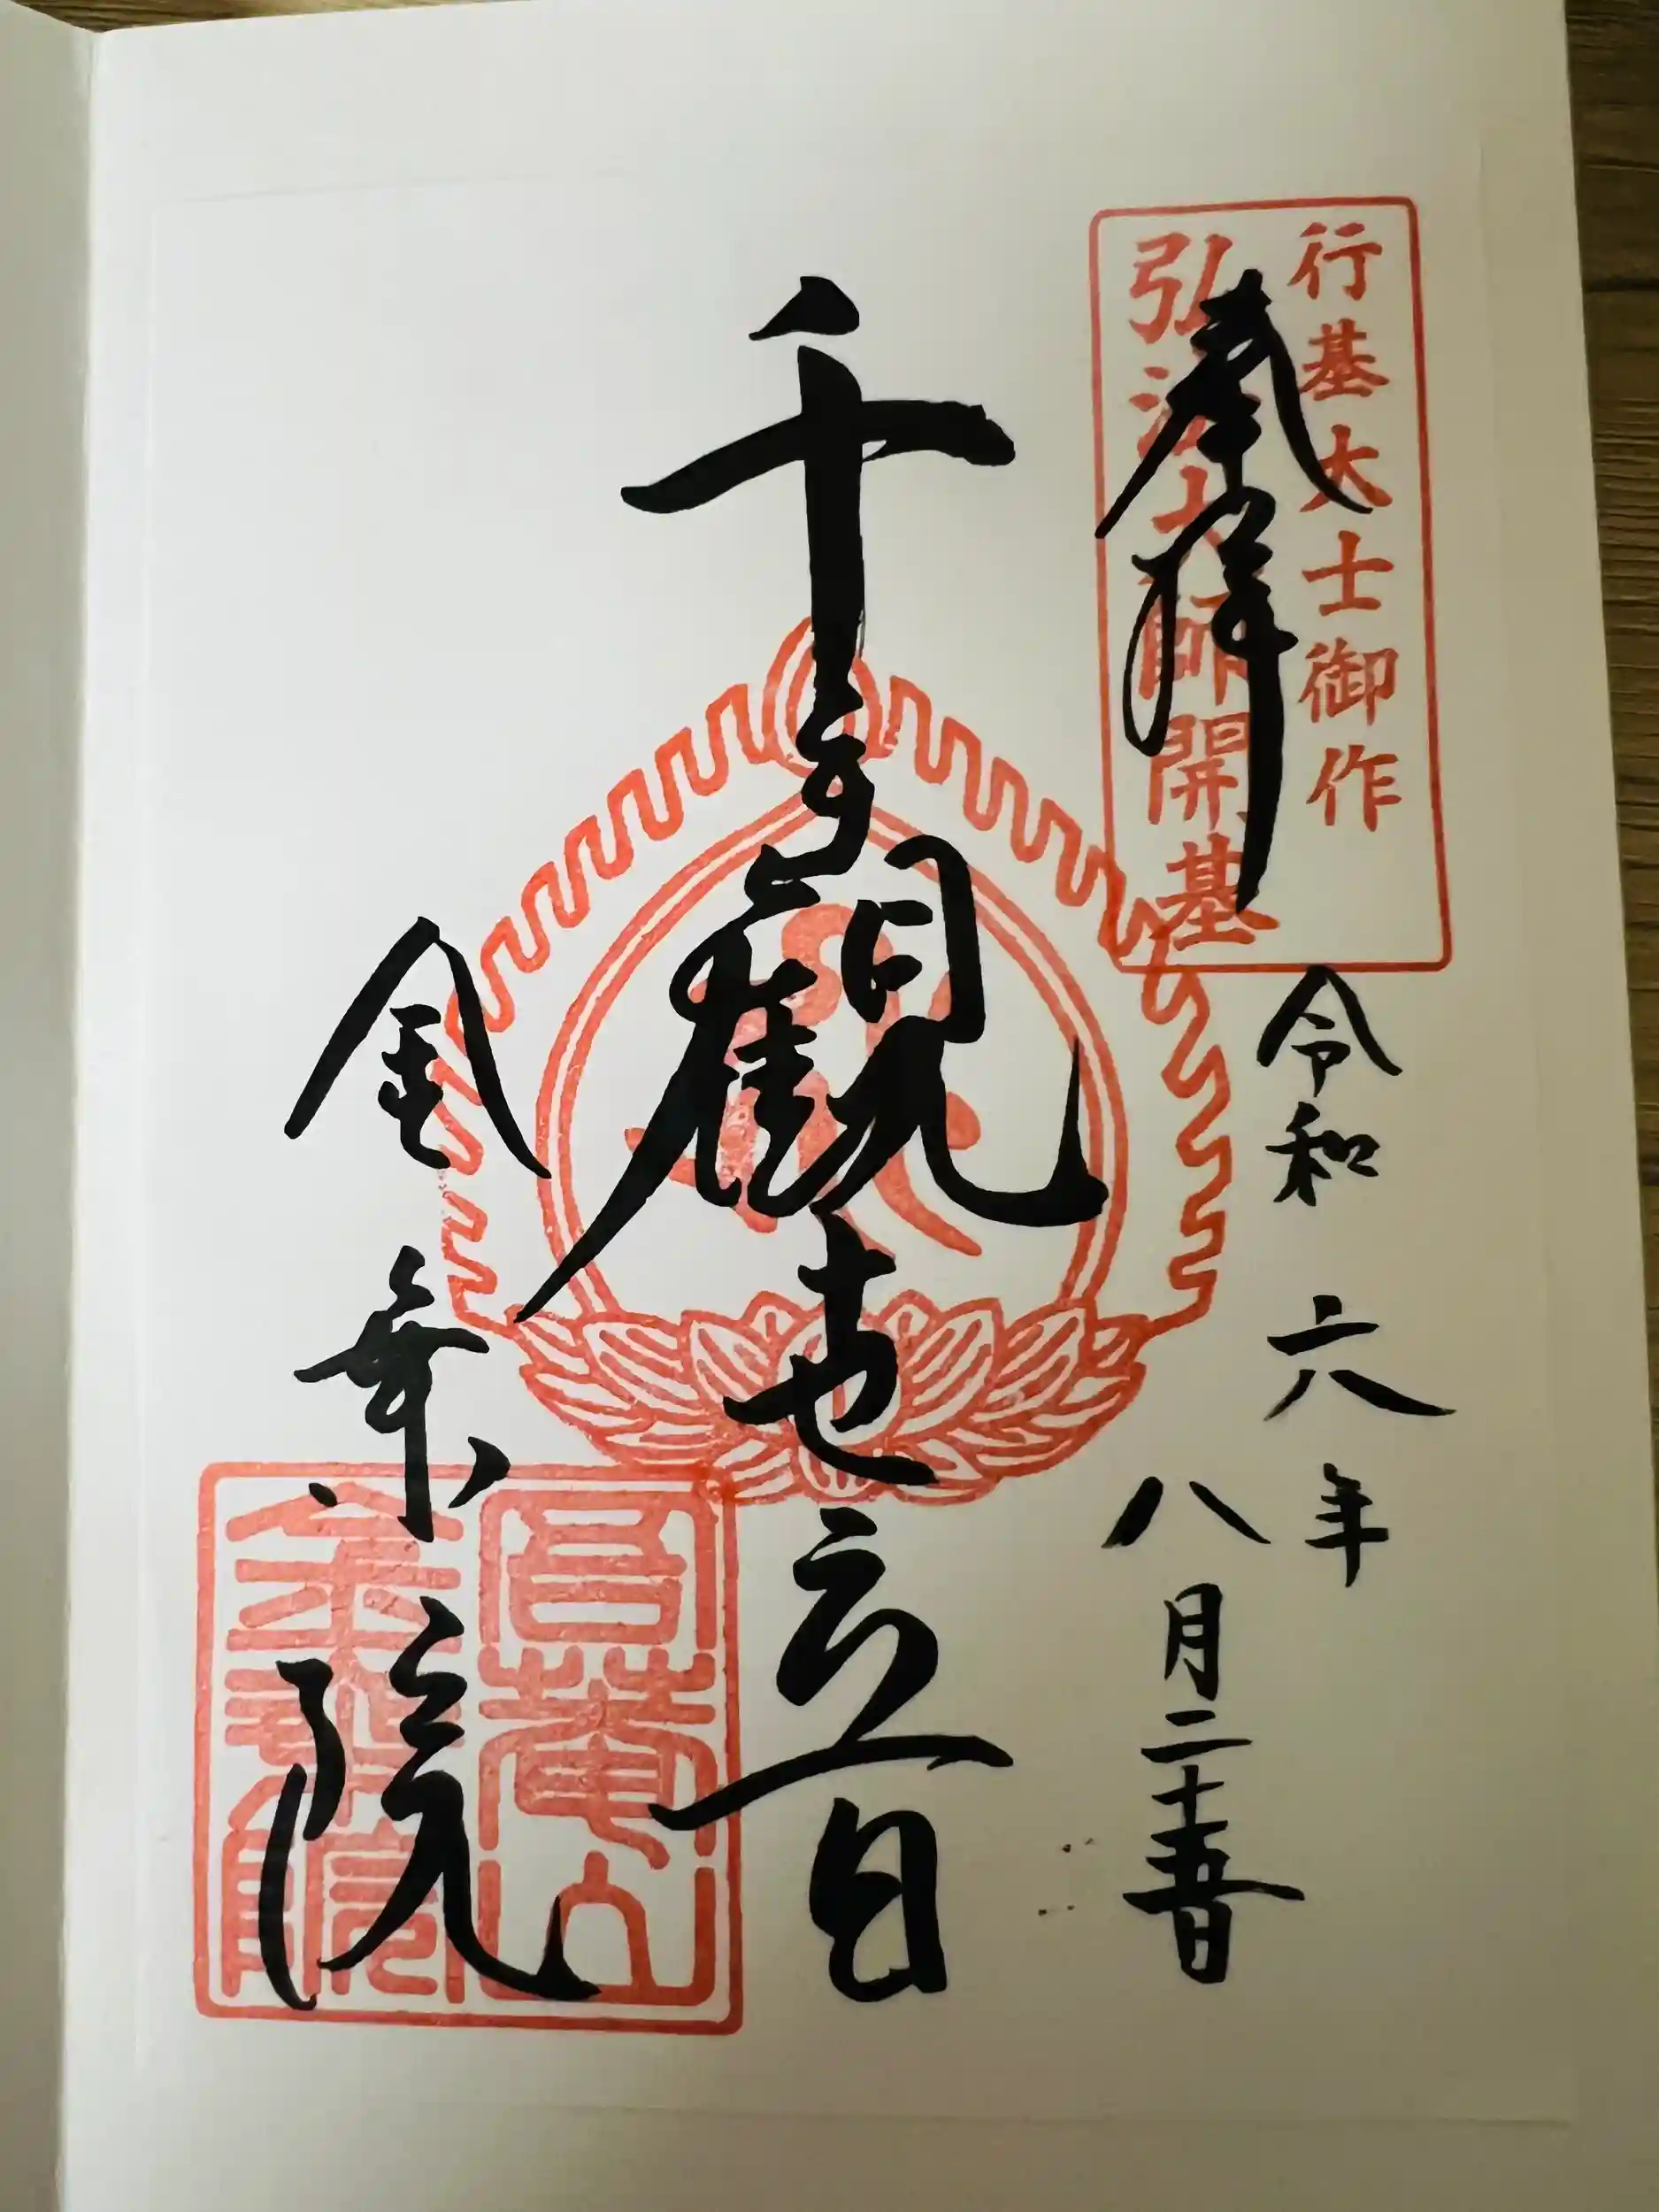 行基大士御作
弘法大師開基
奉拝
令和六年
八月二十五日
千手觀世音
金乗院
金乗院